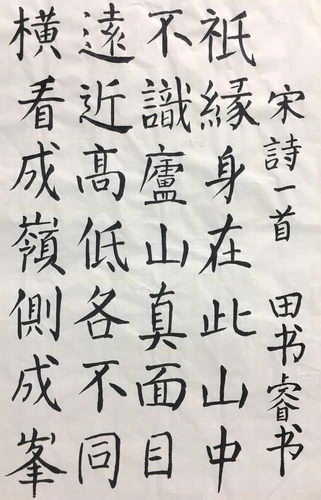 橫看成嶺側成峯
遠近高低各不同
不識廬山真面目
祇緣身在此山中
宋詩一首 田书睿书